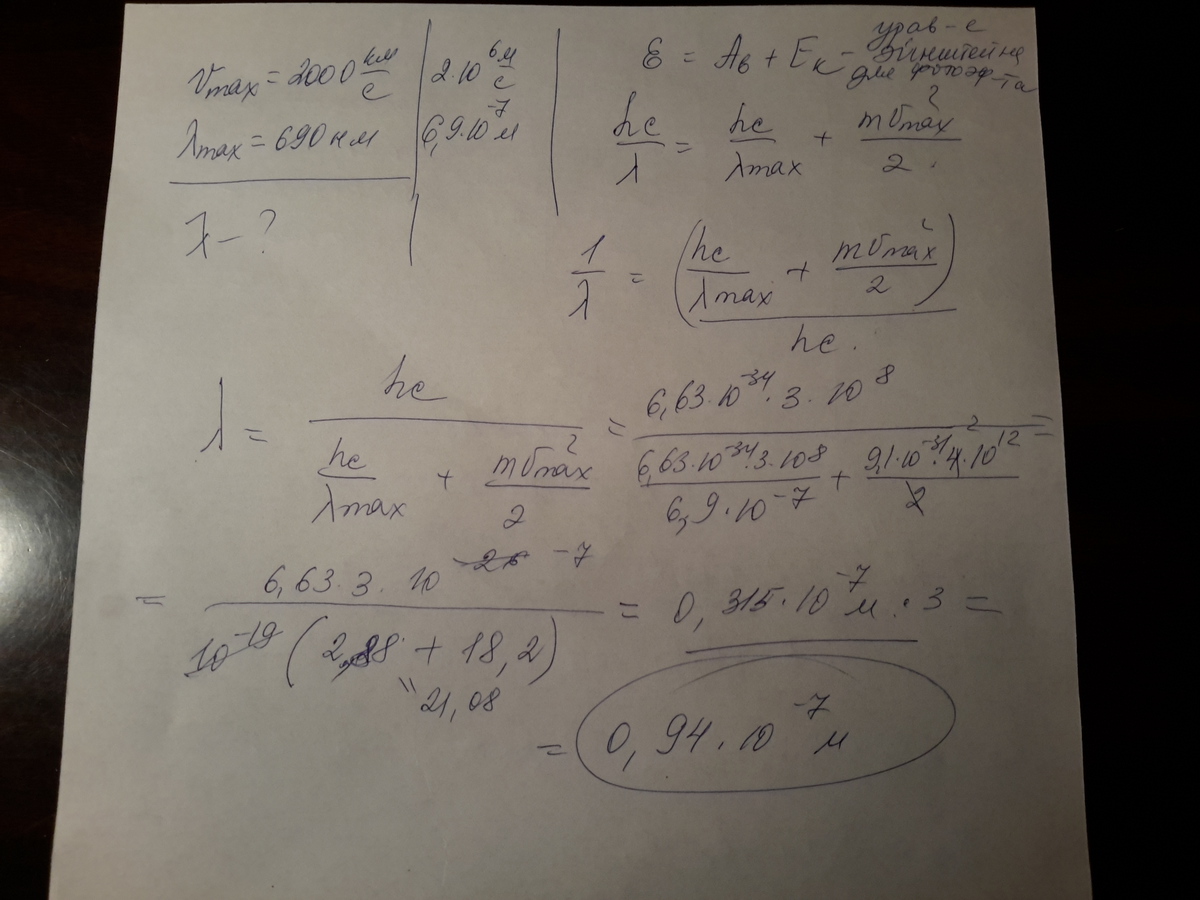 υmax = 2000 км/с | 2·10⁶ м/с
λmax = 690 нм | 6,9·10⁻⁷ м
λ – ?
ℰ = Aв + Eк – урав-е Эйнштейна для фотоэф-та
hc/λ = hc/λmax + mυ²max/2.
1/λ = (hc/λmax + mυ²max/2)/hc.
λ = hc/(hc/λmax + mυ²max/2) = 6,63·10⁻³⁴·3·10⁸/(6,63·10⁻³⁴·3·10⁸/6,9·10⁻⁷ + 9,1·10⁻³¹·4·10¹²/2) =
= 6,63·3·10⁻⁷/10⁻¹⁹(2,88 + 18,2) = 0,315·10⁻⁷ м·3 =
"21,08
= 0,94·10⁻⁷ м